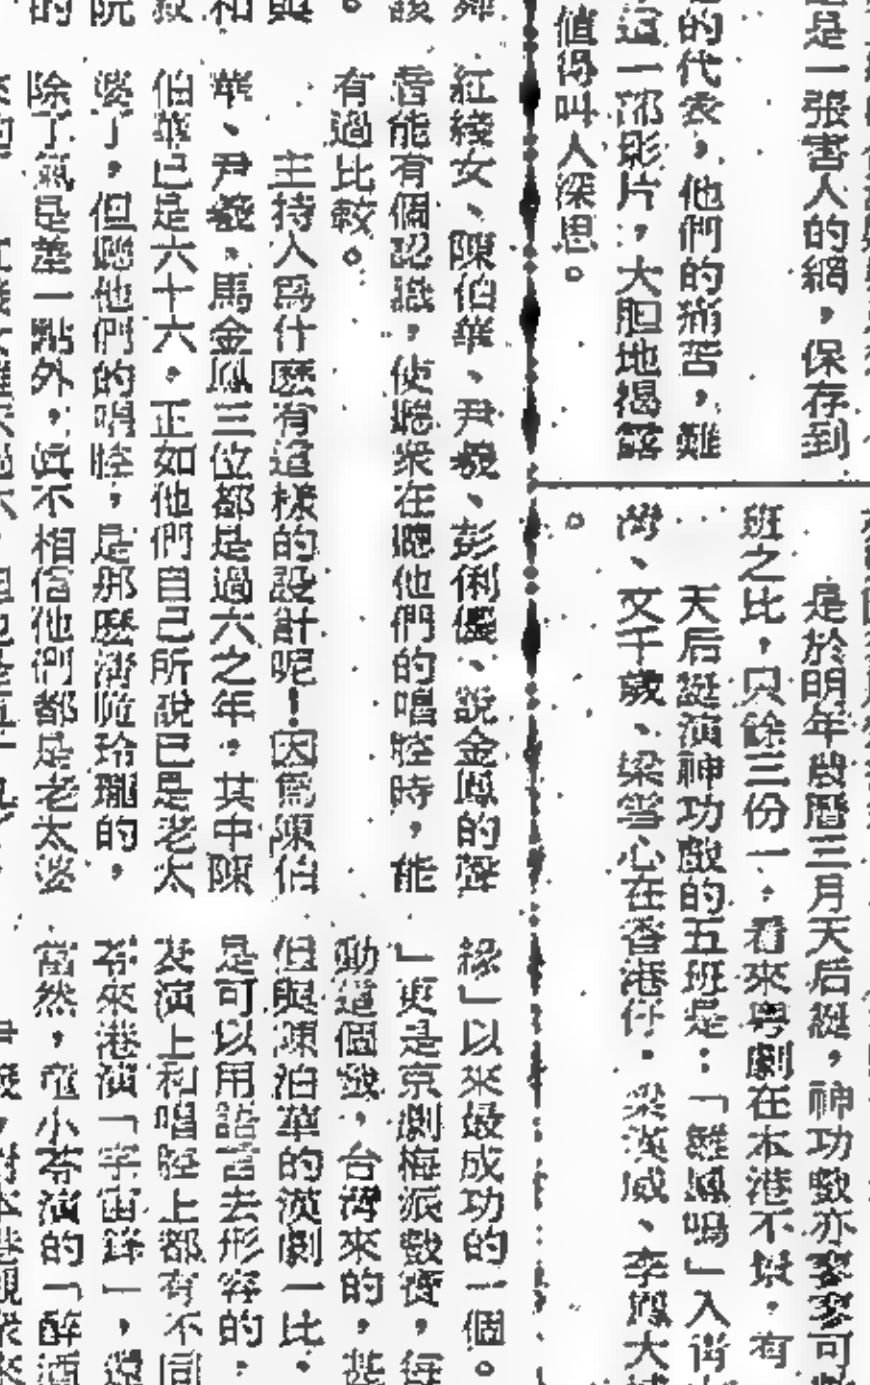 是一張害人的網，保存到
的代表，他們的痛苦，難
這一部影片，大胆地揭露
值得叫人深思。
是於明年農曆三月天后誕，神功戲亦寥寥可
班之比，只餘三份一，看來粤劇在本港不景，有
天后誕演神功戲的五班是：「雛鳳鳴」入
灣、文千歲、梁雪心在香港仔，梁漢威、李鳳大
。
紅綫女、陳伯華、尹羲、彭俐儂、說金鳳的聲
音能有個認識，使聽衆在聽他們的唱腔時，能
有過比較。
主持人爲什麽有這樣的設計呢！因爲陳伯
華、尹羲，馬金鳳三位都是過六之年，其中陳
伯華已是六十六，正如他們自己所說已是老太
婆了，但聽他們的唱腔，是那麽清脆玲瓏的，
除了氣是差一點外，眞不相信他們都是老太婆
緣」以來最成功的一個。
」更是京劇梅派戲寶，每
動這個戲，台灣來的，甚
但與陳泊華的漢劇一比，
是可以用語言去形容的，
表演上和唱腔上都有不同
苓來港演「宇宙鋒」，還
當然，童小苓演的「醉酒